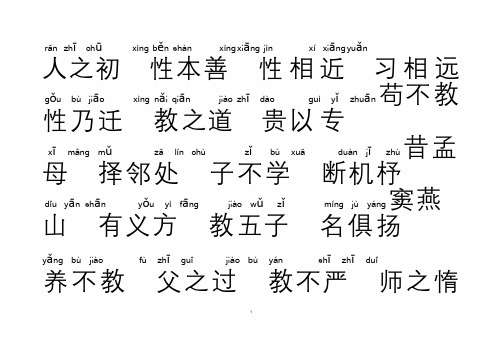 rén zhī chū xìng běn shàn xìng xiāng jìn xí xiāng yuǎn
人之初 性本善 性相近 习相远
gǒu bù jiāo xìng nǎi qiān jiào zhī dào guì yǐ zhuān
苟不教 性乃迁 教之道 贵以专
xī mèng mǔ zé lín chù zǐ bù xué duàn jī zhù
昔孟母 择邻处 子不学 断机杼
dòu yān shān yǒu yì fāng jiào wǔ zǐ míng jù yáng
窦燕山 有义方 教五子 名俱扬
yǎng bù jiào fù zhī guò jiào bù yán shī zhī duò
养不教 父之过 教不严 师之惰
1